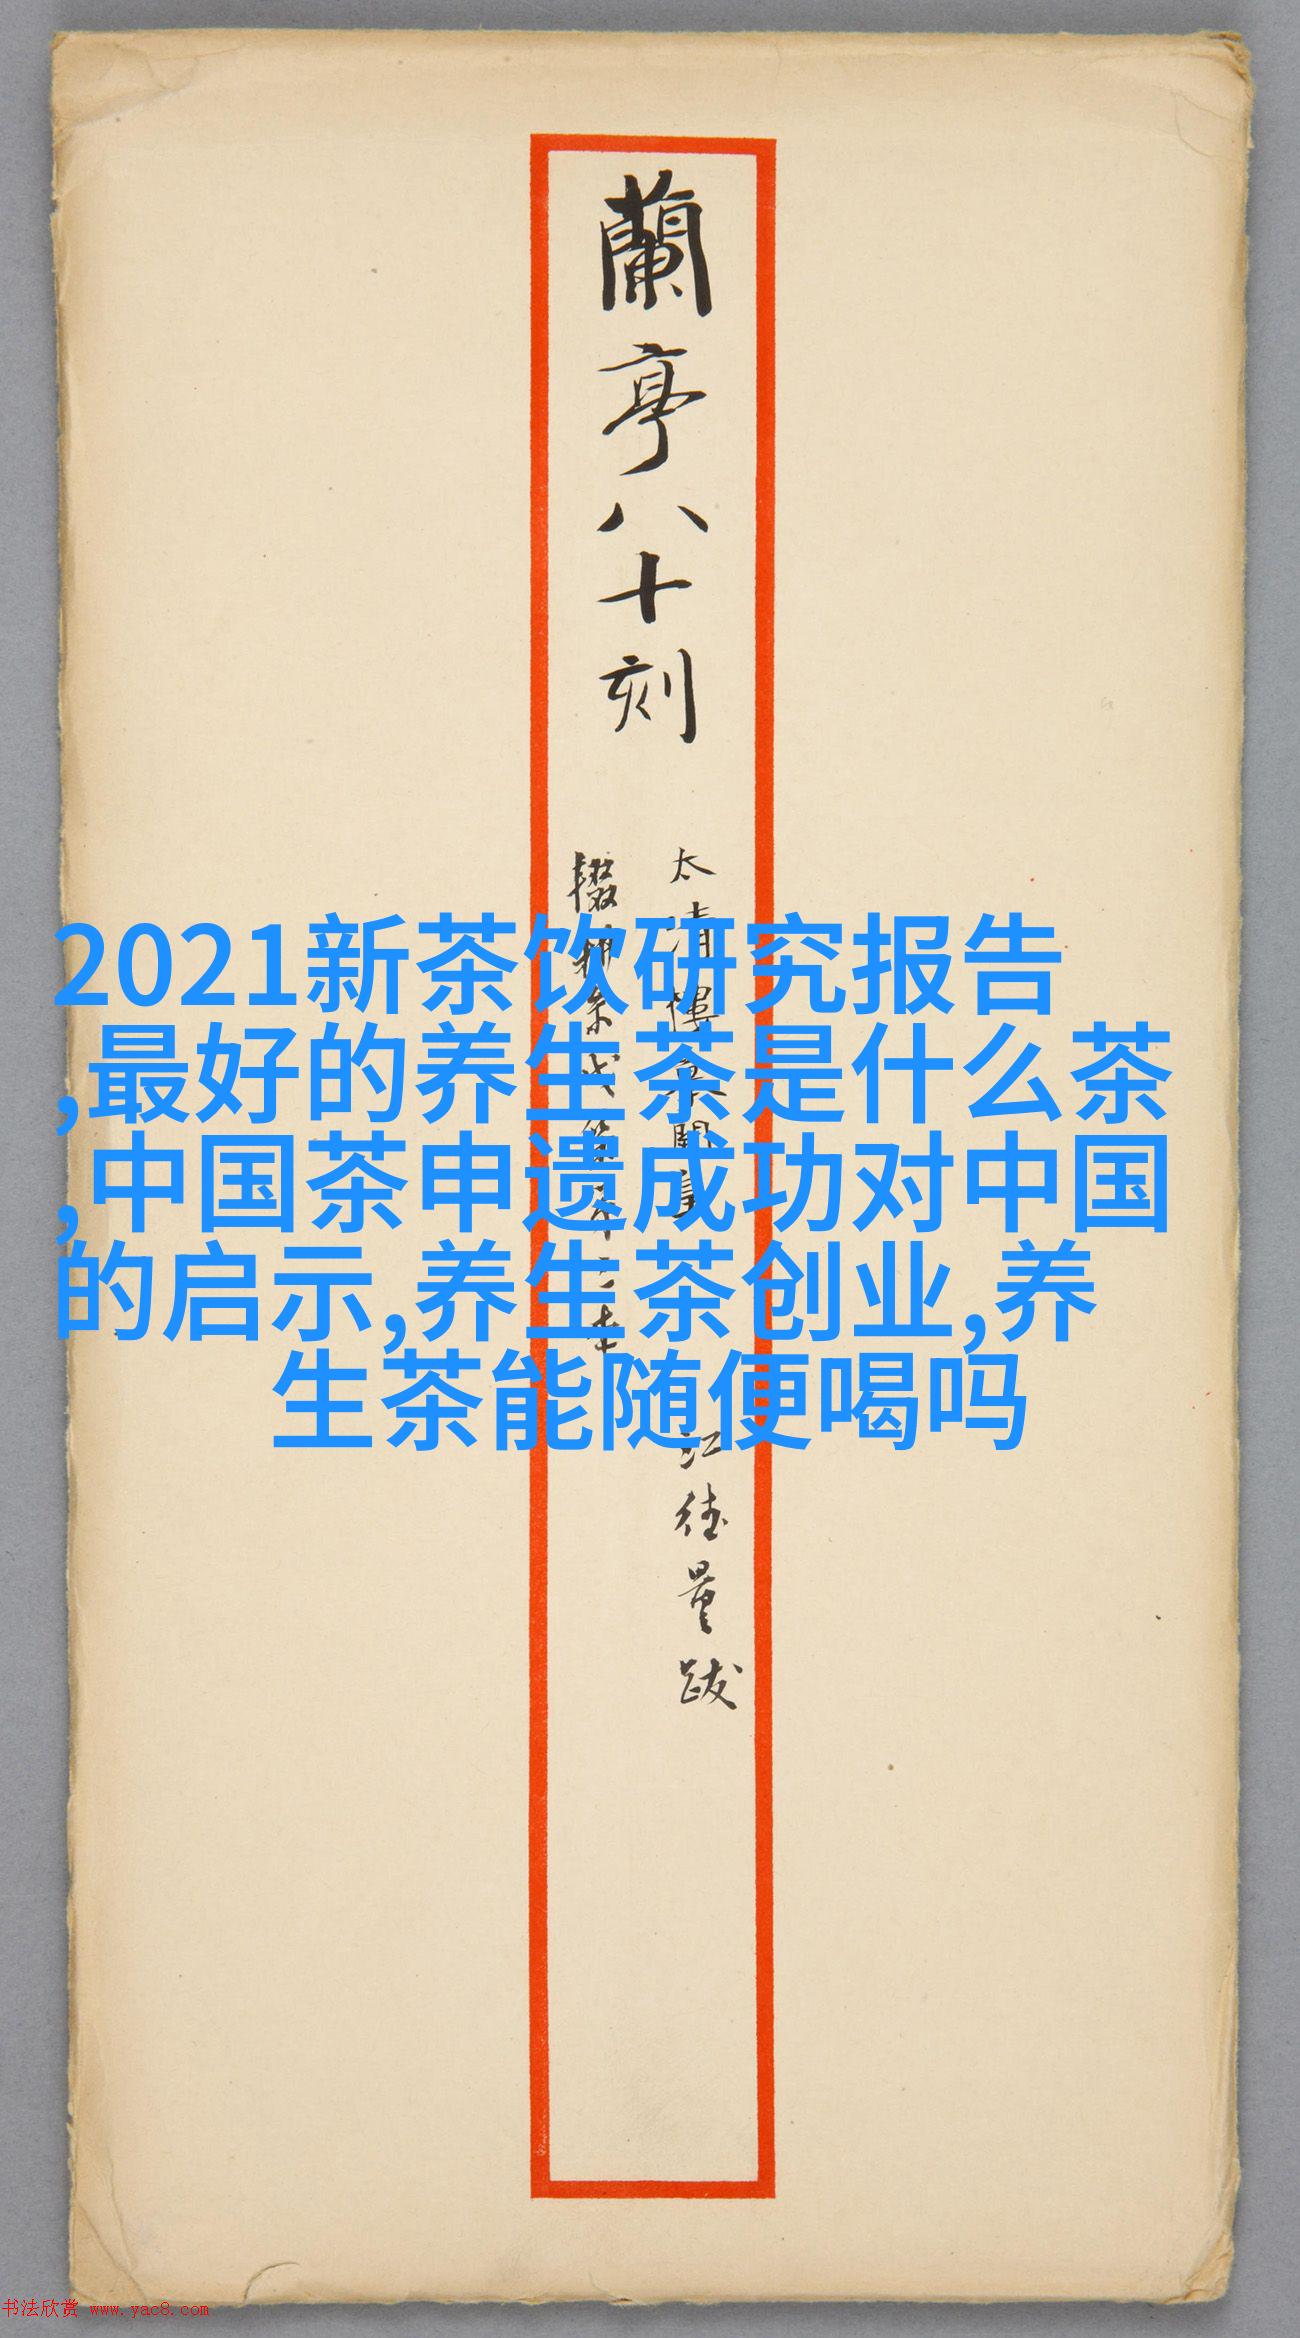 蘭亭八十刻
太清樓
江德量跋
2021新茶饮研究报告
,最好的养生茶是什么茶
,中国茶申遗成功对中国
的启示,养生茶创业,养
生茶能随便喝吗
书法欣赏 www.yac8.com